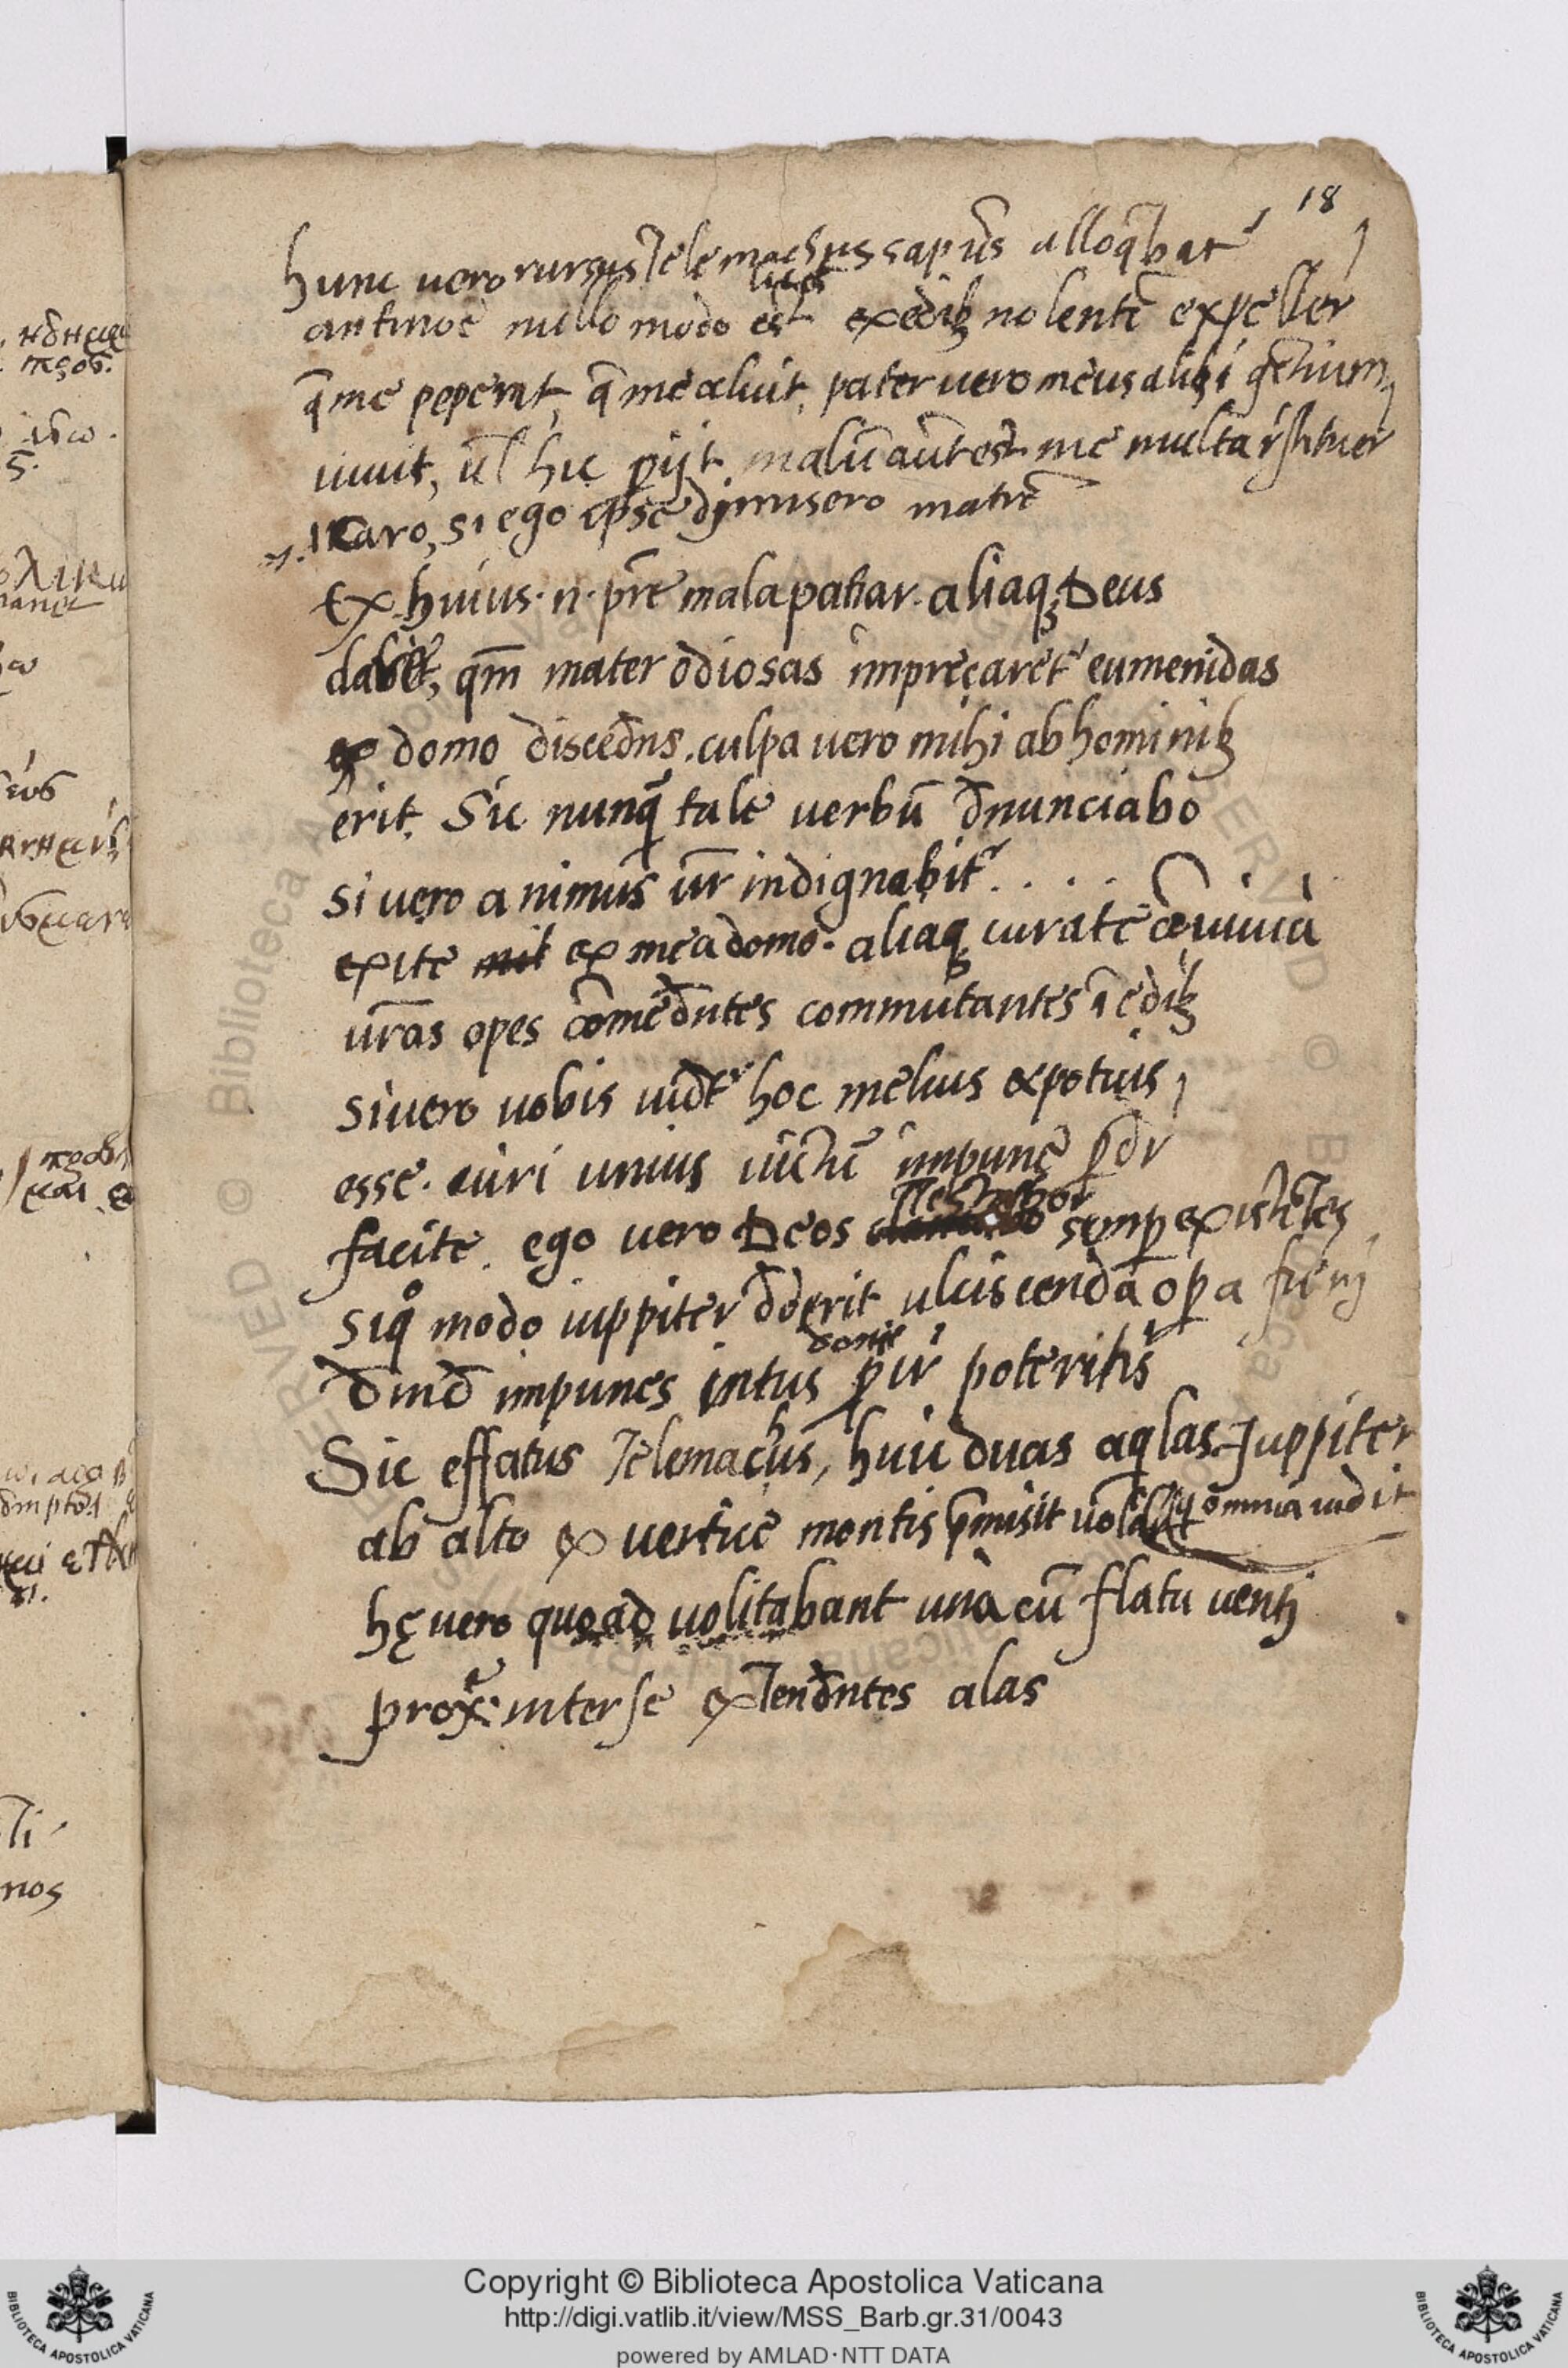 18
hunc uero rursus Telemachus sapiẽs alloq̃bat᷑
licet
antinoe nullo modo est ex edib; nolentẽ expeller
q̃ me peperit, q̃ me aluit, pater uero meus alibi gẽtium
uiuit, ul̃ hic ꝑijt. malũ aũt est me multa rs̃tituer
Icaro, si ego ipse dimisero matrẽ
Ex huius .n. pr̃e mala patiar. aliaq; Deus
dabit, qm̃ mater odiosas imprecaret᷑ eumenidas
ex domo discedñs. culpa uero mihi ab hominib;
erit. Sic nunq̃ tale uerbũ dñunciabo
si uero animus ur̃ indignabit᷑ . . . .
exite ex mea domo. aliaq; curate cõuiuia
ur̃as opes comedñtes commutantes ĩ edib;
si uero uobis uidet᷑ hoc melius & potius
esse. uiri unius uictũ impune ꝑdr
facite. ego uero Deos semꝑ existẽtes
siq̊ modo iuppiter dederit ulciscenda oꝑa fieri
deinde impunes intus ꝑir poteritis
Sic effatus Telemachus, huic duas aq̃las Juppiter
ab alto ex uertice montis p̃misit uolar̃ q omnia uidit
hę uero quoad uolitabant unà cũ flatu uenti
prox̃e inter se extendñtes alas
Copyright © Biblioteca Apostolica Vaticana
http://digi.vatlib.it/view/MSS_Barb.gr.31/0043
powered by AMLAD·NTT DATA